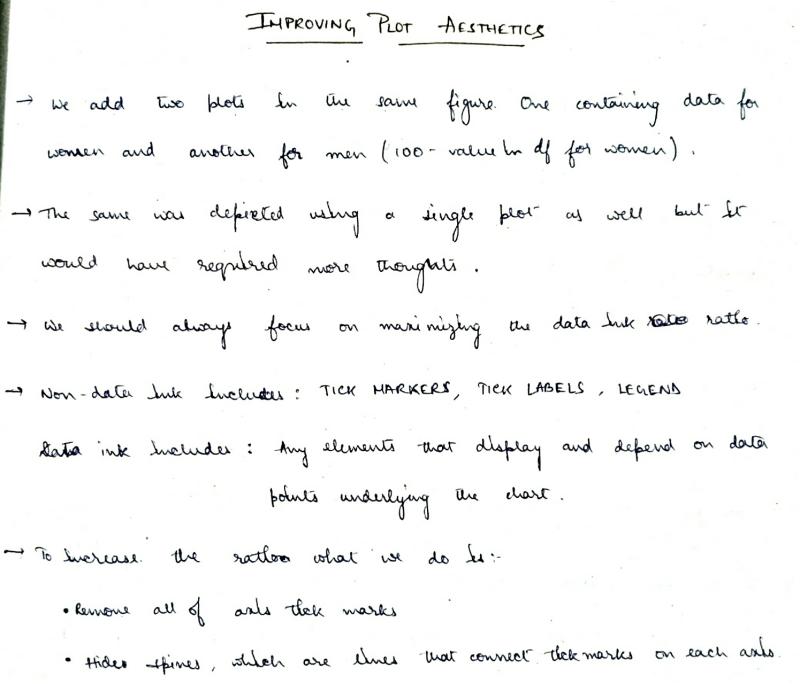 IMPROVING PLOT AESTHETICS
→ We add two plots in the same figure. One containing data for
women and another for men (100 - value in df for women).
→ The same was depicted using a single plot as well but it
would have required more thoughts.
→ We should always focus on maximizing the data ink ratio.
→ Non-data ink includes: TICK MARKERS, TICK LABELS, LEGEND
Data ink includes: Any elements that display and depend on data
points underlying the chart.
→ To increase the ratio what we do is:-
• Remove all of axis tick marks
• Hides spines, which are lines that connect tick marks on each axis.